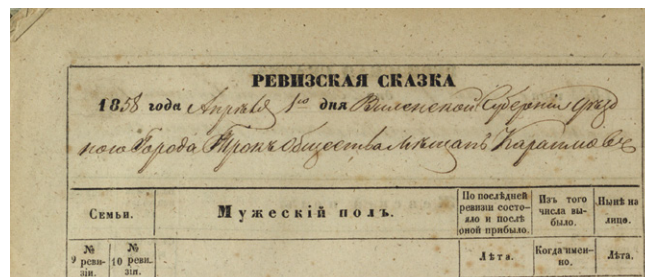 РЕВИЗСКАЯ СКАЗКА
1858 года Апреля 1го дня Виленской Губернiи Уезд
ного Города Трокъ Общества Мѣщанъ Караимовъ
Семьи.
Мужескiй полъ.
По послѣдней
ревизiи состо-
яло и послѣ
оной прибыло.
Изъ того
числа вы-
было.
Нынѣ на
лицо.
№
9 реви-
зiи.
№
10 реви-
зiи.
Лѣта.
Когда имен-
но.
Лѣта.